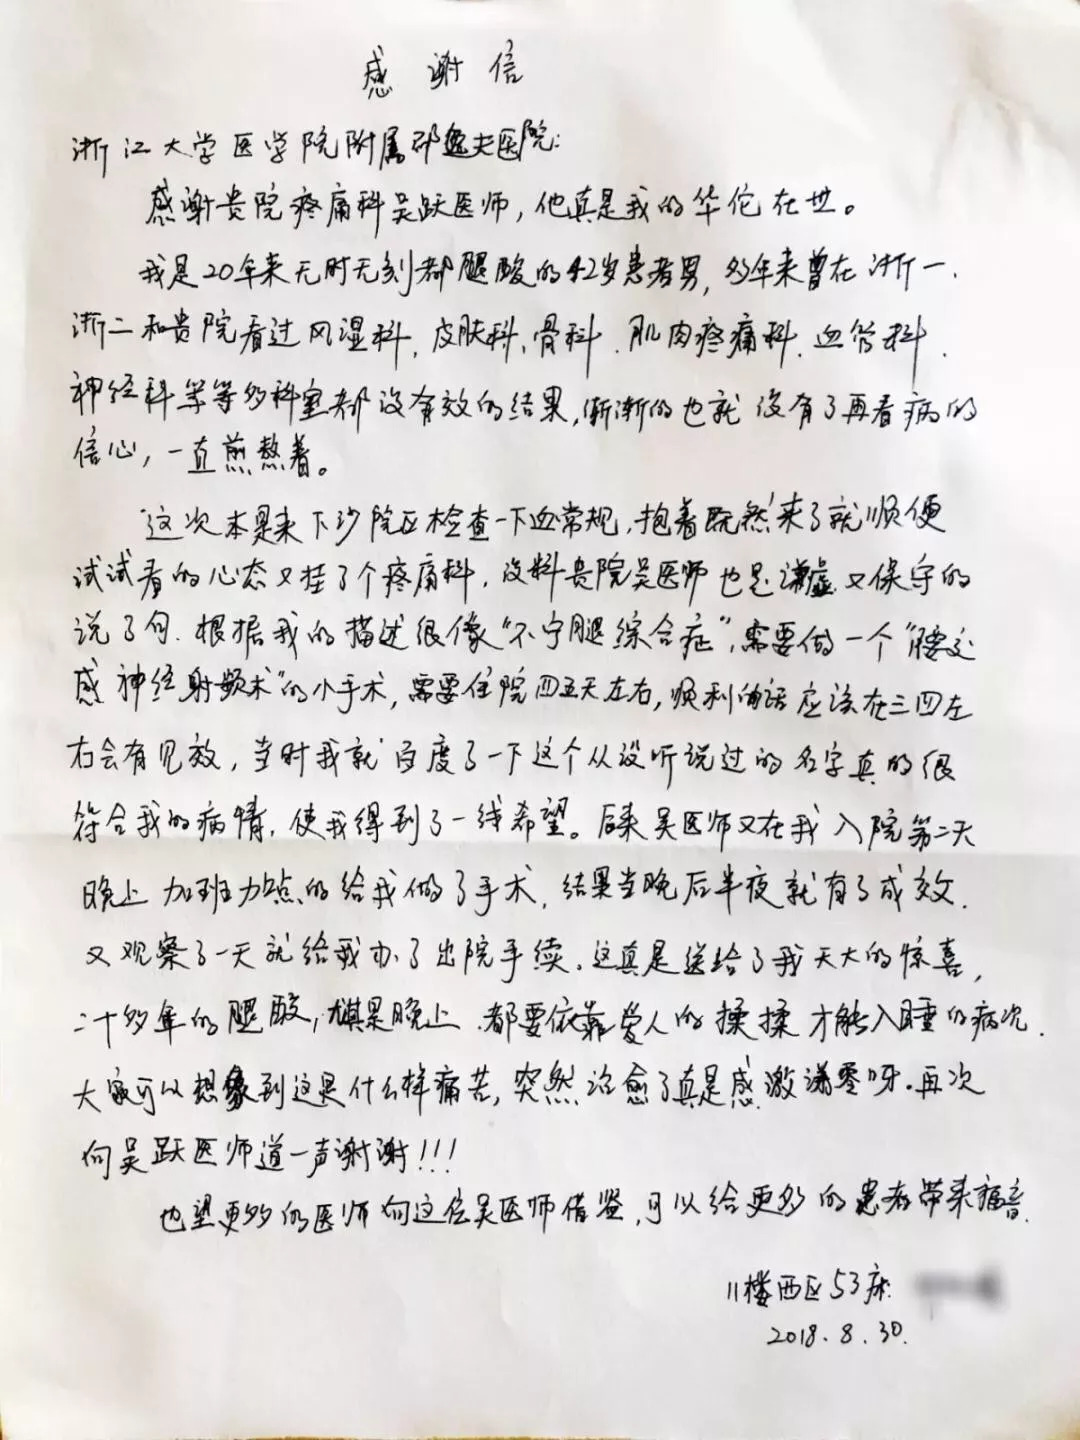 感谢信
浙江大学医学院附属邵逸夫医院:
感谢贵院疼痛科吴跃医师,他真是我的华佗在世。
我是20年来无时无刻都腿酸的42岁患者男,多年来曾在浙一、
浙二和贵院看过风湿科、皮肤科、骨科、肌肉疼痛科、血管科、
神经科等等多科室都没有效的结果,渐渐的也就没有了再看病的
信心,一直煎熬着。
这次本是来下沙院区检查一下血常规,抱着既然来了就顺便
试试看的心态又挂了个疼痛科,没料贵院吴医师也是谦虚又保守的
说了句.根据我的描述很像“不宁腿综合症”,需要做一个“腰交
感神经射频术”的小手术,需要住院四五天左右,顺利的话应该在三四左
右会有见效,当时我就百度了一下这个从没听说过的名字真的很
符合我的病情,使我得到了一线希望。后来吴医师又在我入院第二天
晚上加班加点的给我做了手术,结果当晚后半夜就有了成效.
又观察了一天就给我办了出院手续.这真是送给了我天大的惊喜,
二十多年的腿酸,尤其是晚上.都要依靠爱人的揉揉才能入睡的病况.
大家可以想象到这是什么样痛苦,突然治愈了真是感激涕零呀.再次
向吴跃医师道一声谢谢!!!
也望更多的医师向这位吴医师借鉴,可以给更多的患者带来福音.
11楼西区53床
2018.8.30.